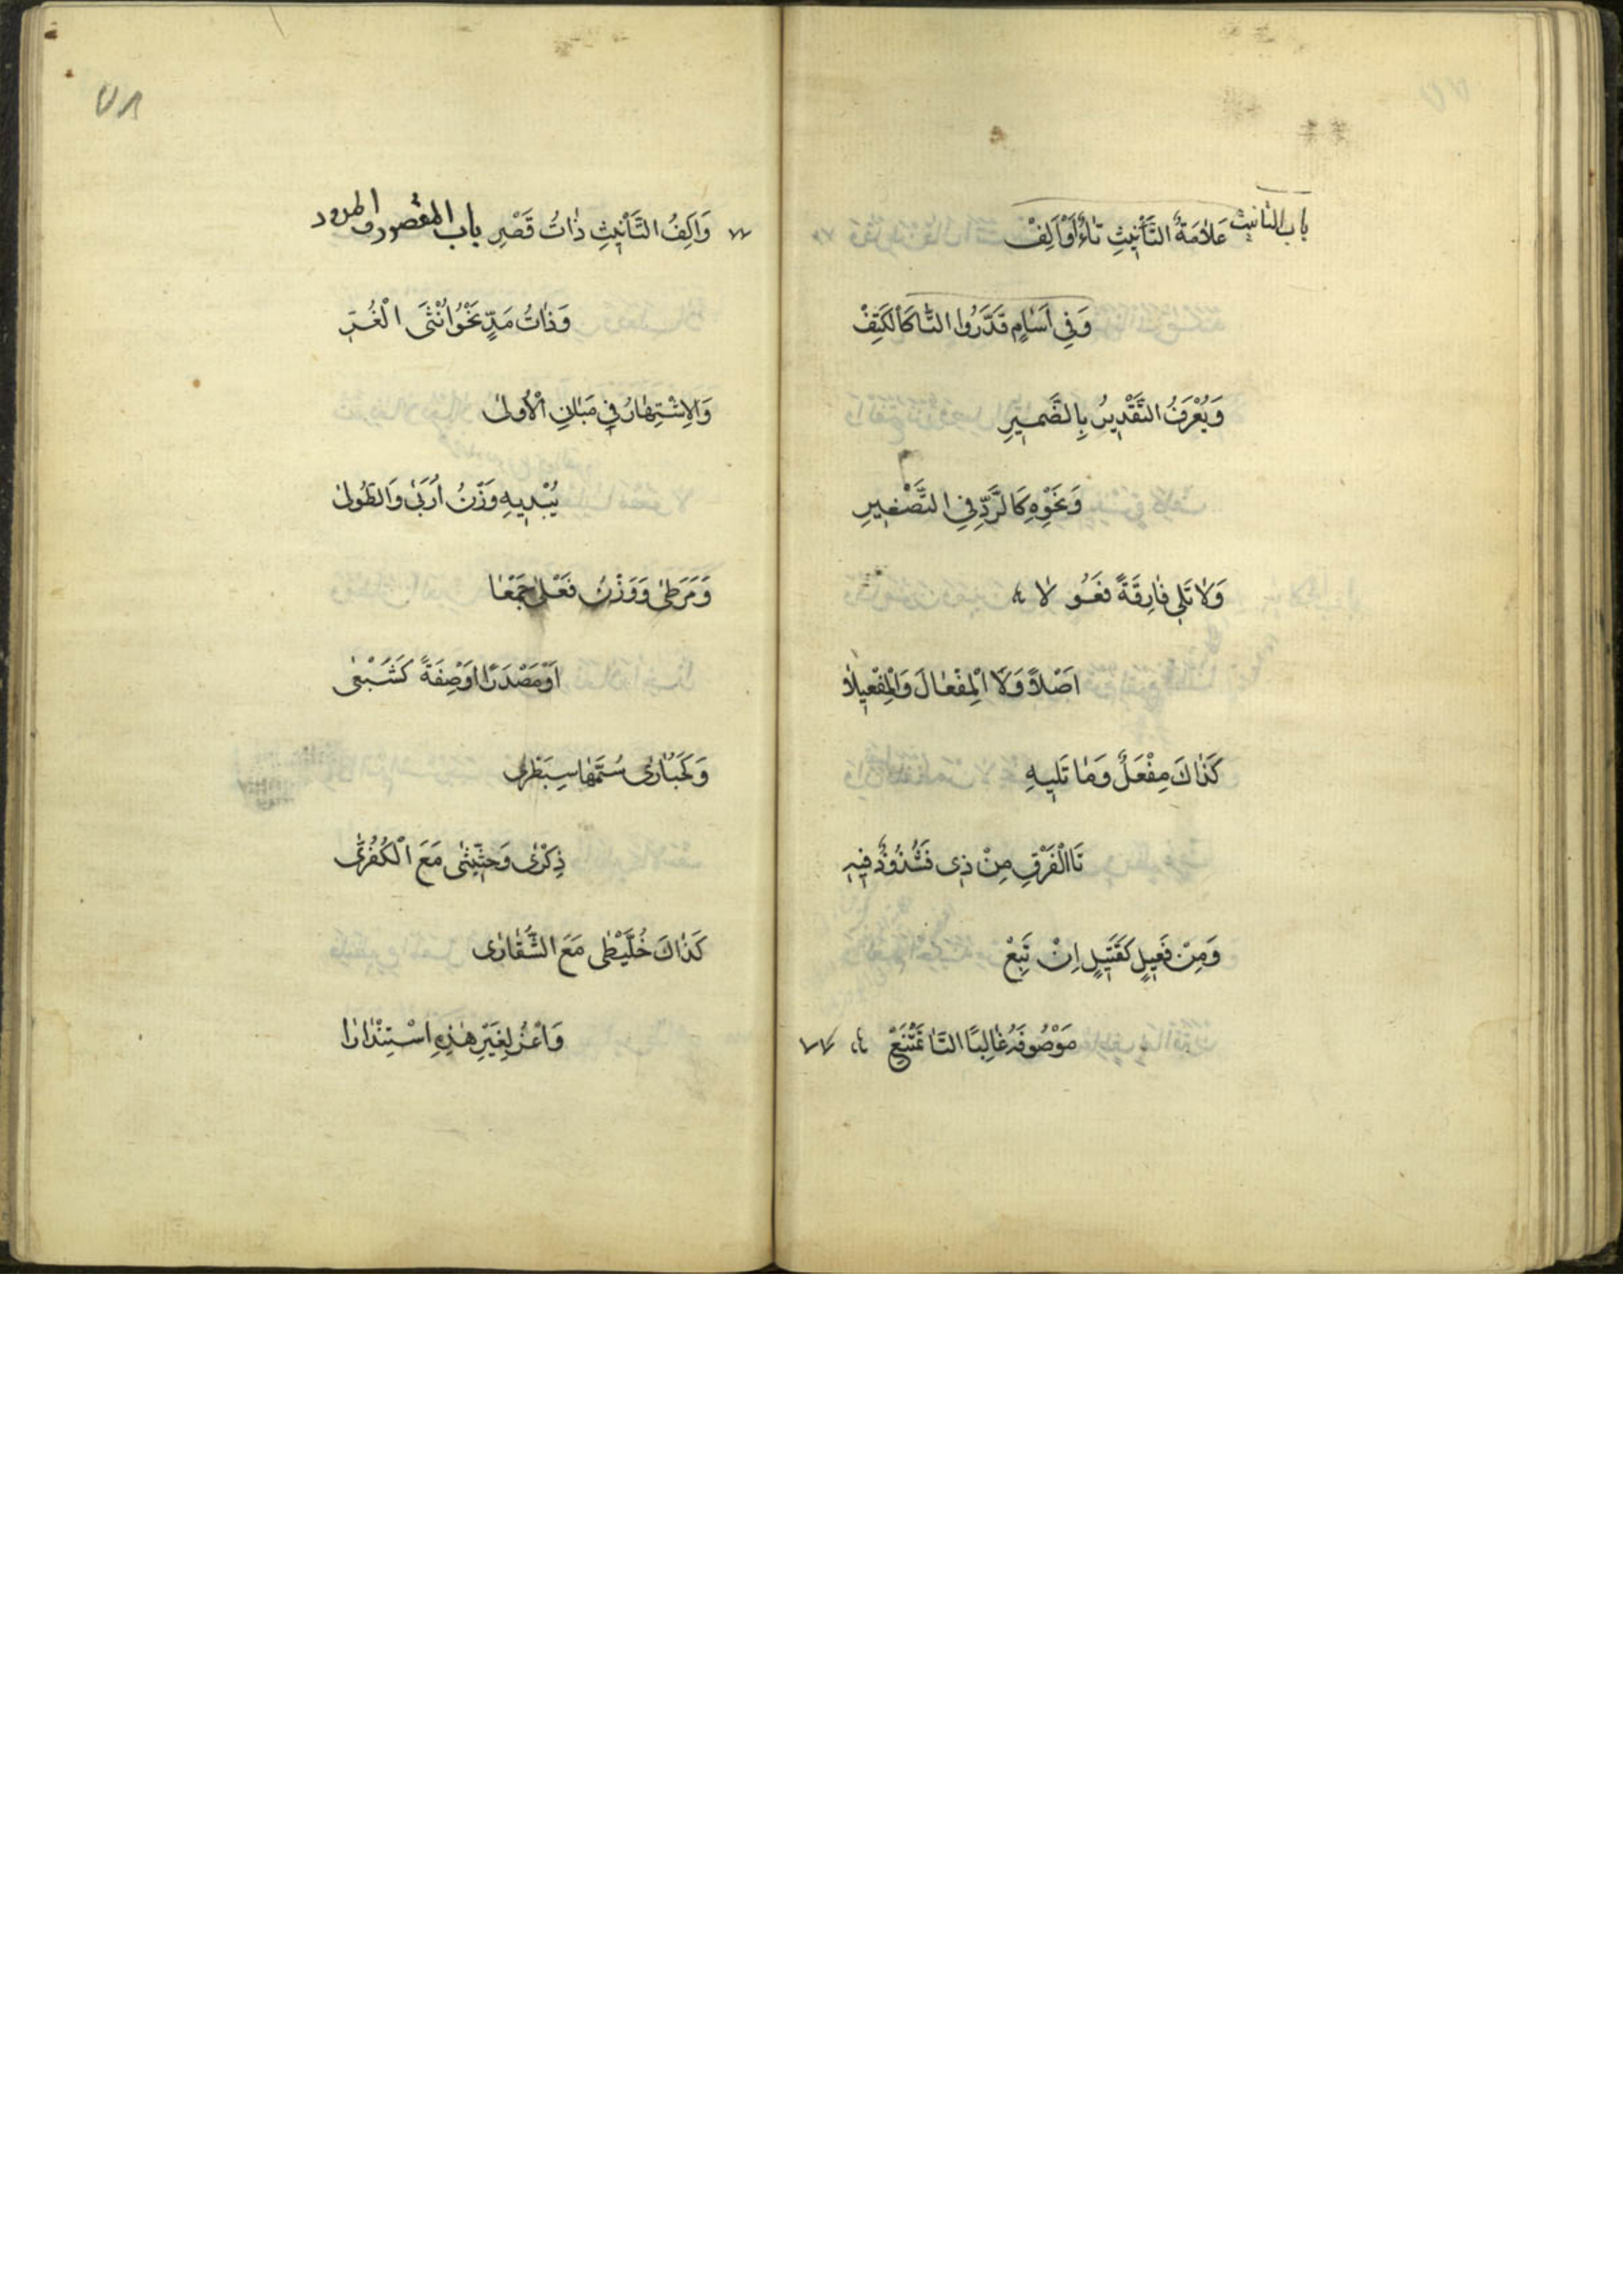 باب التانيث
عَلَامَةُ التَّأْنِيثِ تَاءٌ أَوْ أَلِفْ
وَفِي أَسَامٍ قَدَّرُوا التَّا كَالْكَتِفْ
وَيُعْرَفُ التَّقْدِيرُ بِالضَّمِيرِ
وَنَحْوِهِ كَالرَّدِّ فِي التَّصْغِيرِ
وَلَا تَلِي فَارِقَةً فَعُولَا
أَصْلًا وَلَا الْمِفْعَالَ وَالْمِفْعِيلَا
كَذَاكَ مِفْعَلٌ وَمَا تَلِيهِ
تَا الْفَرْقِ مِنْ ذِي فَشُذُوذٌ فِيهِ
وَمِنْ فَعِيلٍ كَقَتِيلٍ إِنْ تَبِعْ
مَوْصُوفَهُ غَالِبًا التَّا تَمْتَنِعْ
٧٨
وَأَلِفُ التَّأْنِيثِ ذَاتُ قَصْرِ باب المقصور والممدود
وَذَاتُ مَدٍّ نَحْوُ أُنْثَى الْغُرِّ
وَالِاشْتِهَارُ فِي مَبَانِي الْأُولَى
يُبْدِيهِ وَزْنُ أُرَبَى وَالطُّولَى
وَمَرَطَى وَوَزْنُ فَعْلَى جَمْعَا
أَوْ مَصْدَرًا أَوْ صِفَةً كَشَبْعَى
وَكَحُبَارَى سُمَّهَى سِبَطْرَى
ذِكْرَى وَحِثِّيثَى مَعَ الْكُفُرَّى
كَذَاكَ خُلَّيْطَى مَعَ الشُّقَّارَى
وَاعْزُ لِغَيْرِ هَذِهِ اسْتِنْدَارَا